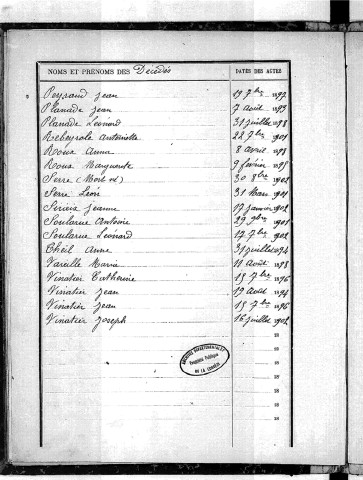 NOMS ET PRÉNOMS DES Décédés DATES DES ACTES
Peyraud Jean 19 7bre 1897
Planade Jean 7 avril 1893
Planade Léonard 31 juillet 1898
Rebeyrole Antoinette 22 7bre 1901
Roux Anna 8 avril 1898
Roux Marguerite 9 février 1895
Serre (Mort né) 30 8bre 1901
Serre Léon 31 Mars 1901
Sirieix Jeanne 17 janvier 1901
Soularue Antoine 29 9bre 1901
Soularue Léonard 17 7bre 1902
Theil Anne 31 juillet 1894
Vareille Maria 11 Août 1898
Vinatier Catherine 15 7bre 1896
Vinatier Jean 19 Août 1894
Vinatier Jean 15 7bre 1896
Vinatier Joseph 16 juillet 1902
18
18
ARCHIVES DÉPARTEMENTALES
Propriété Publique
DE LA CORRÈZE
18
18
18
18
18